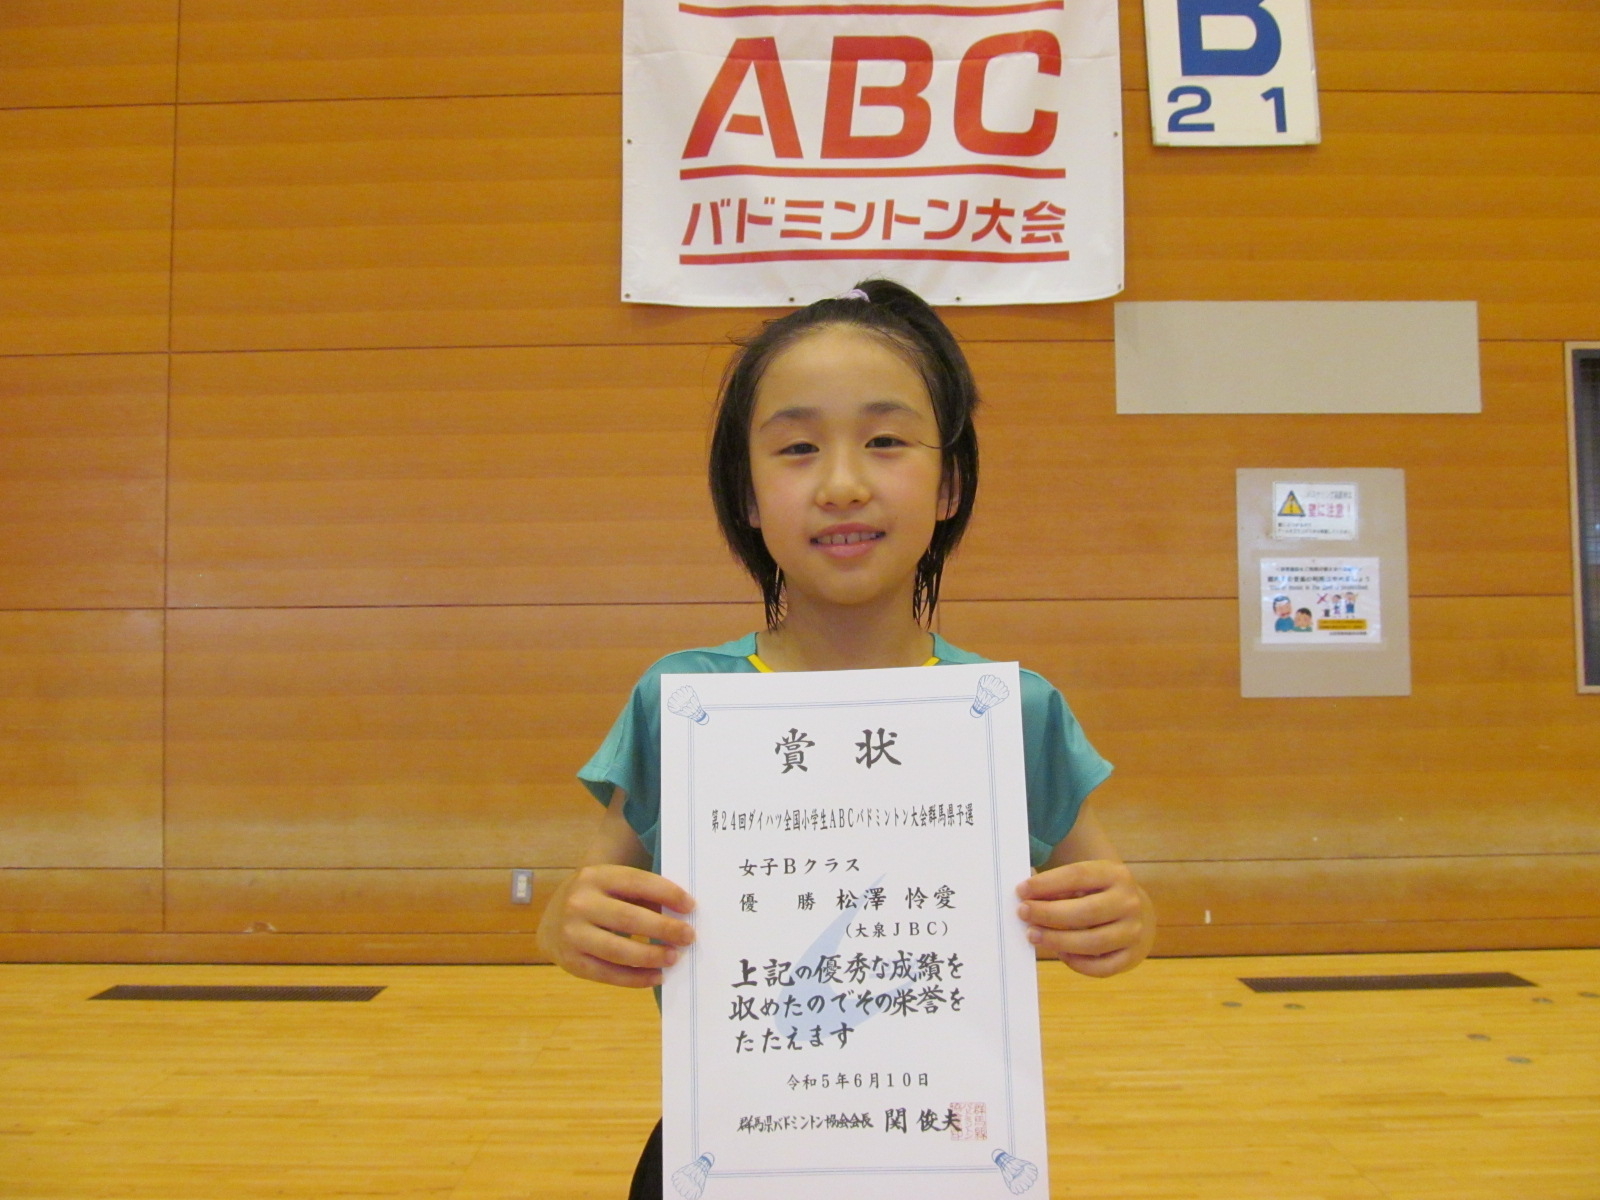 ABC
バドミントン大会
B
21
壁に注意！
賞状
第24回ダイハツ全国小学生ABCバドミントン大会群馬県予選
女子Bクラス
優　勝　松澤　怜愛
（大泉JBC）
上記の優秀な成績を
収めたのでその栄誉を
たたえます
令和5年6月10日
群馬県バドミントン協会会長　関　俊夫